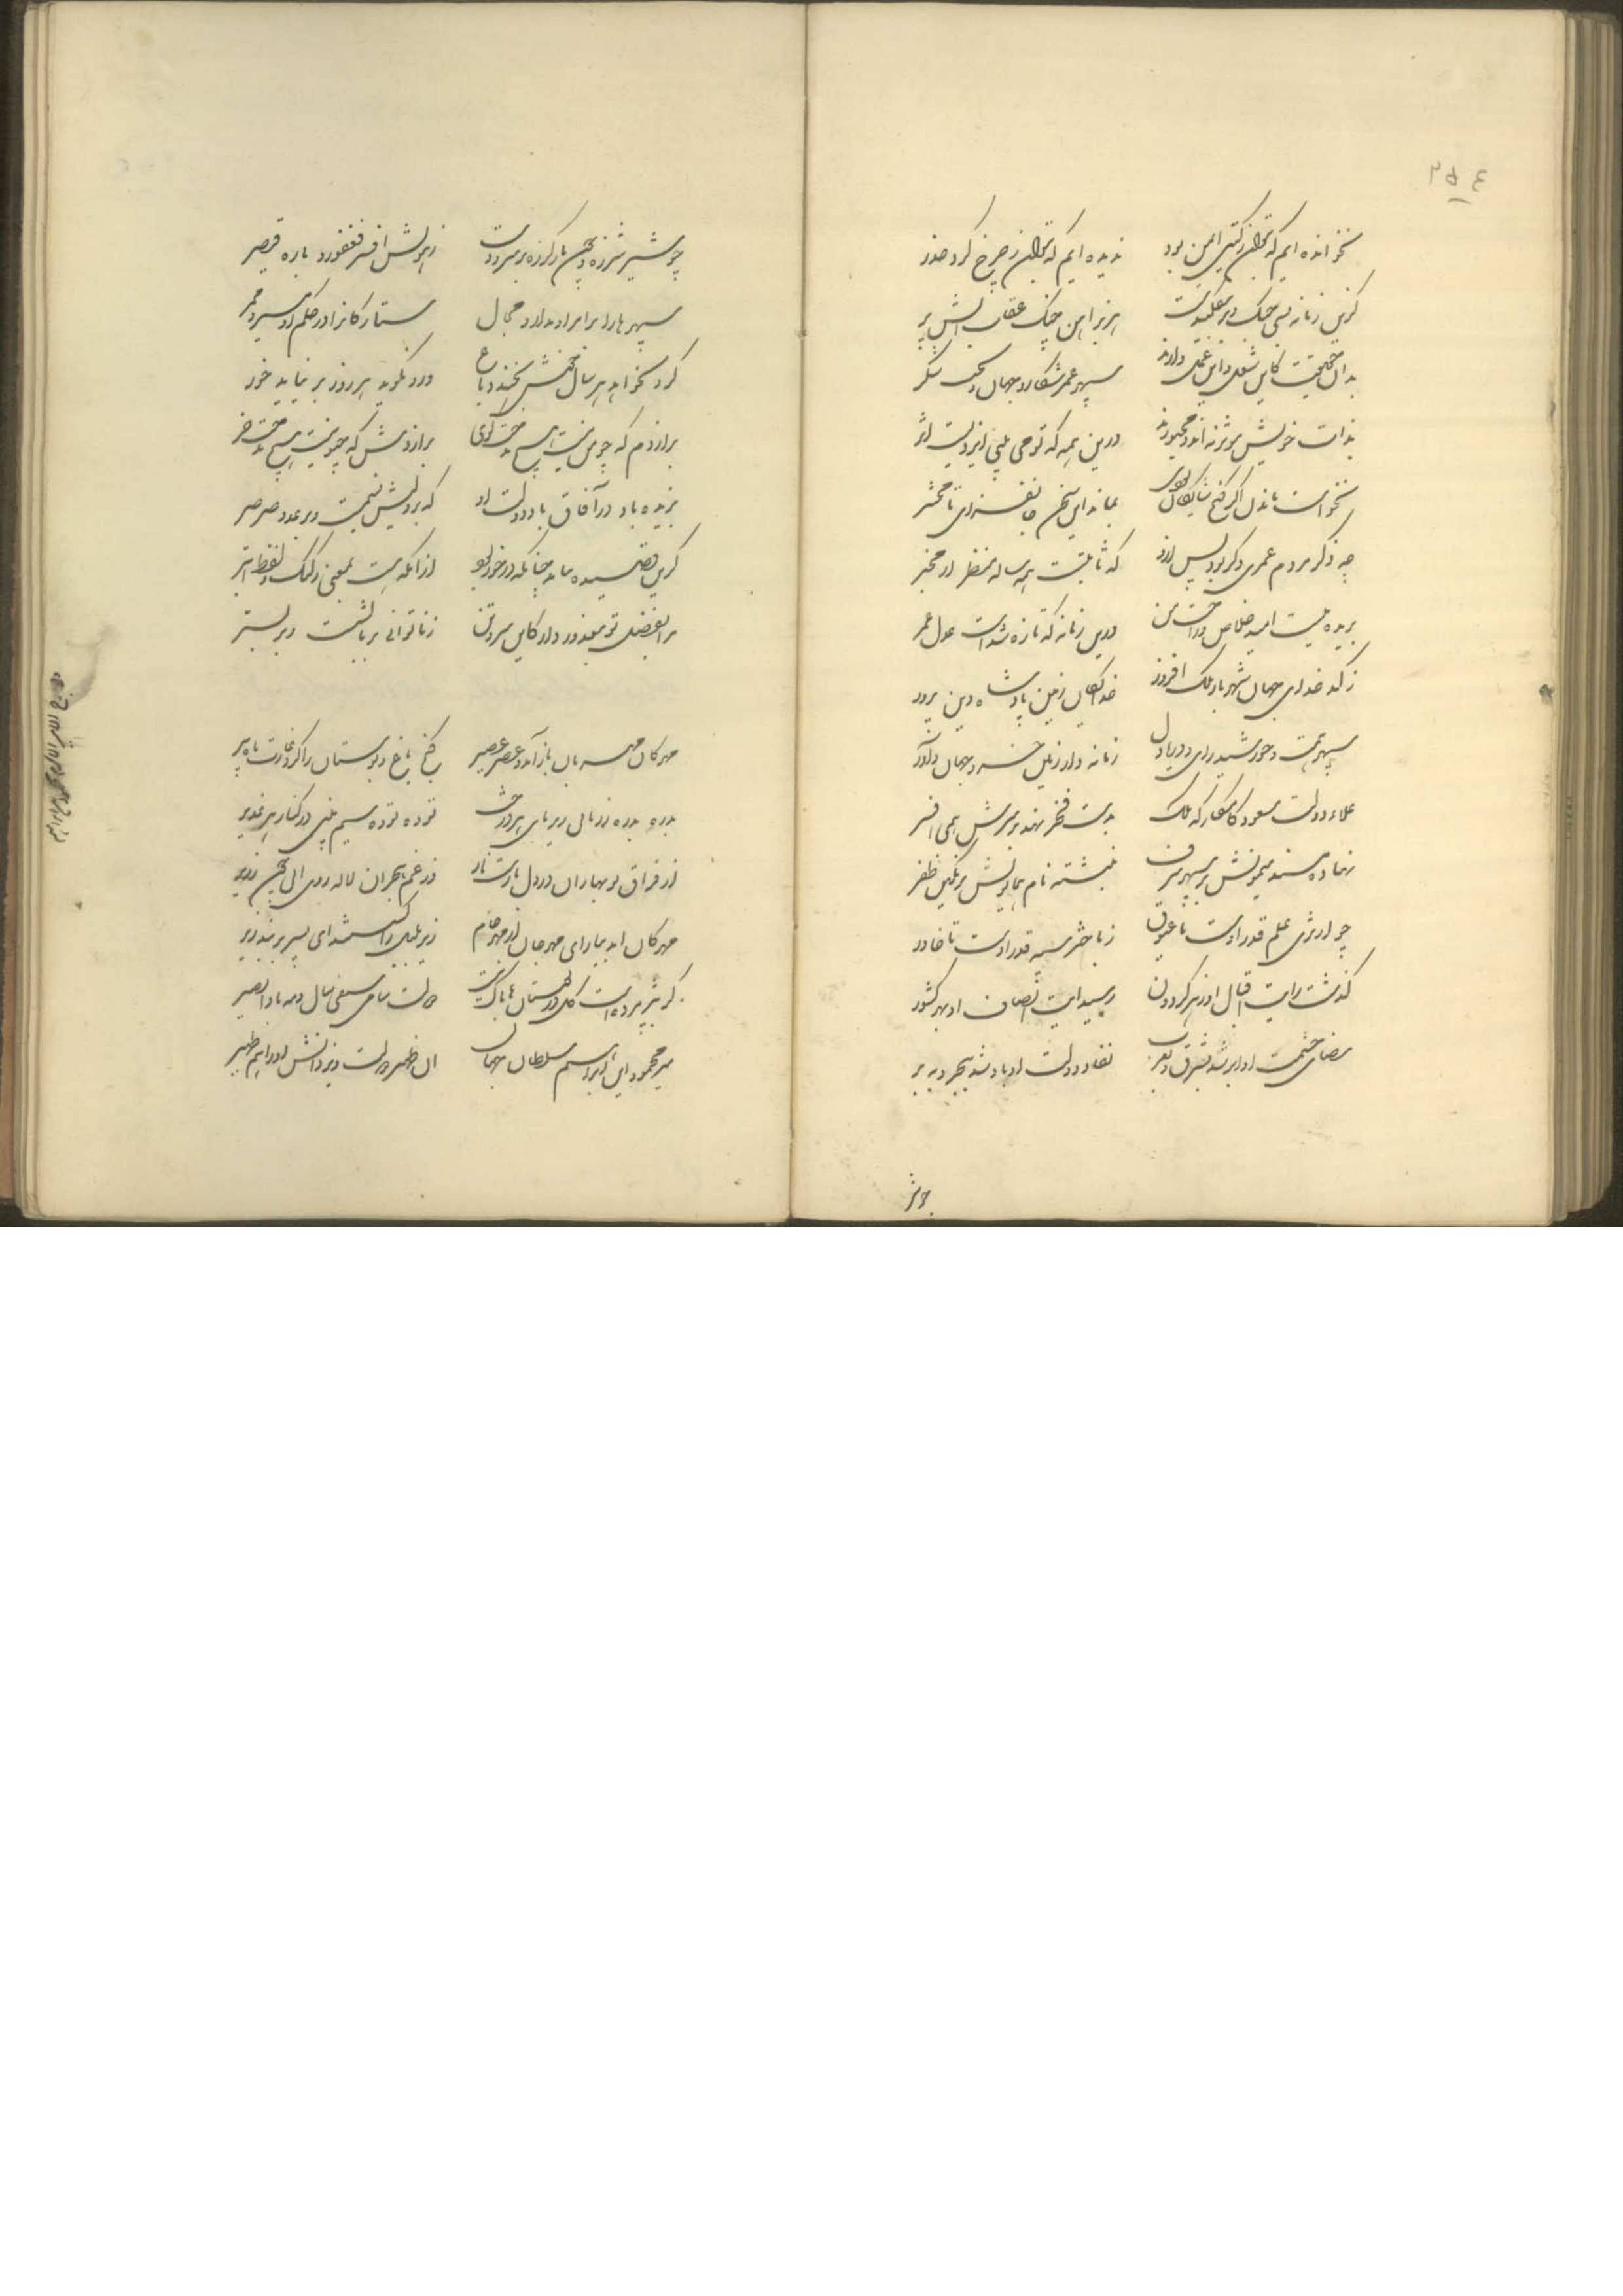 ۲۵۴
نخوانده ایم که بتوان ز کیتی ایمن بود ندیده ایم که بتوان ز چرخ کرد حذر
کزین زمانه بسی جنک دیو هربر آهن چنک عقاب آتش پر
بدان حقیقت کاین شغل و این عمل دارند سپهر عمر شکار و جهان
بذات خویش مؤثر نه اند و مجبورند درین همه که تو می بینی ایزدیست اثر
نخواست ماند اکر کنج شایکان بودی بماند این سخن جانفزای تا محشر
چه ذکر مردم عمری دکر بود پس ازو که ثابتست همه ساله منظر از مخبر
بریده نیست امید خلاص و راحت من درین زمانه که تازه شدست عدل عمر
ز کدخدای جهان شهریار ملک افروز خدایکان زمین پادشاه دین پرور
سپهر همت و خورشید رای و دریا دل زمانه دار زمین خسرو جهان داور
علاء دولت مسعود کامکار که ملک بدست فخر نهد بر سرش همی افسر
نهاده مسند میمونش بر سپهر شرف نبشته نام همایونش بر نکین ظفر
چو از ثری علم قدر اوست تا عیوق ز باختر سپه قدر اوست تا خاور
کذشت رایت اقبال او ز هر کردون رسید آیت انصاف او بهر کشور
مضای حشمت او ابر شد بشرق و بغرب نفاد دولت او باد شد ببحر و به بر
چو شیر
چو شیر شرزه و چون مار کرزه بر سر و دست ز هولش افسر فغفور و یاره قیصر
سپهر را برابر او ندارد مجال ستارکان را در حکم او مسیر و ممر
کر او نخواهد هر سال نخندد باغ ور او نکوید هر روز بر نیاید خور
برادرم که چو من نیست هیچ مدحت کوی برادرش که چو نیست هیچ مدحت خر
بزیده باد در آفاق باد دولت او که بر ولیش نسیمست و بر عدو صرصر
کر این قصیده نیامد چنانکه در خور بود از آنکه هست بمعنی رکیک و لفظ ابتر
مرا بفضل تو معذور دار کاین سر و تن ز ناتوانی بر بالشست و بر بستر
مهرکان مهربان باز آمد و عصر عصیر کنج باغ و بوستان را کرد غارت ماه تیر
بدره بدره زر یابی زیر پای هر درخت توده توده سیم بینی در کنار هر غدیر
از فراق نو بهاران در دل نارست نار وز غم هجران لاله روی آبی چون زریر
مهرکان آمد بیارای مهرجان از مهر جام زیر بلبل کسسته شد ای پسر بربند زیر
کر بپژمردست کل در بوستان ها باک نیست دولت سامی سیفی سال و مه بادا نصیر
میر محمود ابن ابراهیم سلطان جهان آن ظهیر دولت و یزدانش او را هم ظهیر